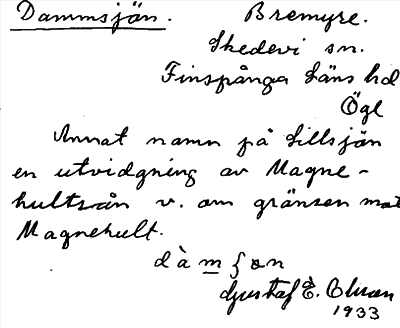 Dammsjön. Bremyre.
Skedevi sn.
Finspånga Läns hd
Ögl
Annat namn på Lillsjön
en utvidgning av Magne-
hultsån v. om gränsen mot
Magnehult.
Gustaf E. Olson
1933